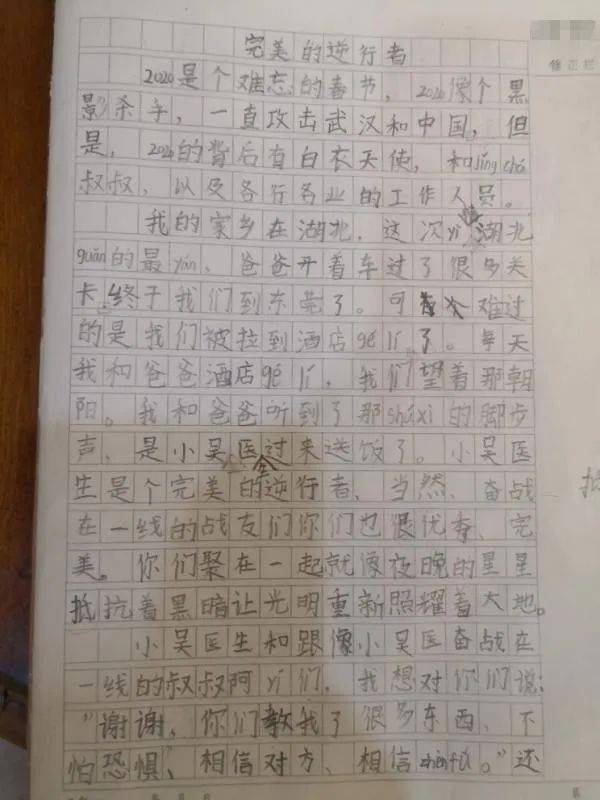 完美的逆行者
2020是个难忘的春节，2020像个黑
影杀手，一直攻击武汉和中国，但
是，2020的背后有白衣天使，和jǐng chá
叔叔，以及各行各业的工作人员。
我的家乡在湖北，这次yì情湖北
guān的最yán、爸爸开着车过了很多关
卡，终于我们到东莞了。可令难过
的是我们被拉到酒店gé lí了。每天
我和爸爸酒店gé lí，我们望着那朝
阳。我和爸爸听到了那shú xi的脚步
声，是小吴医过来送饭了。小吴医
生是个完美的逆行者，当然、奋战
在一线的战友们你们也很优秀、完
美。你们聚在一起就像夜晚的星星
抵抗着黑暗让光明重新照耀着大地。
小吴医生和跟像小吴医奋战在
一线的叔叔阿yí们，我想对你们说：
“谢谢，你们教我了很多东西、不
怕恐惧、相信对方、相信zhèn fǔ。”还
修正栏